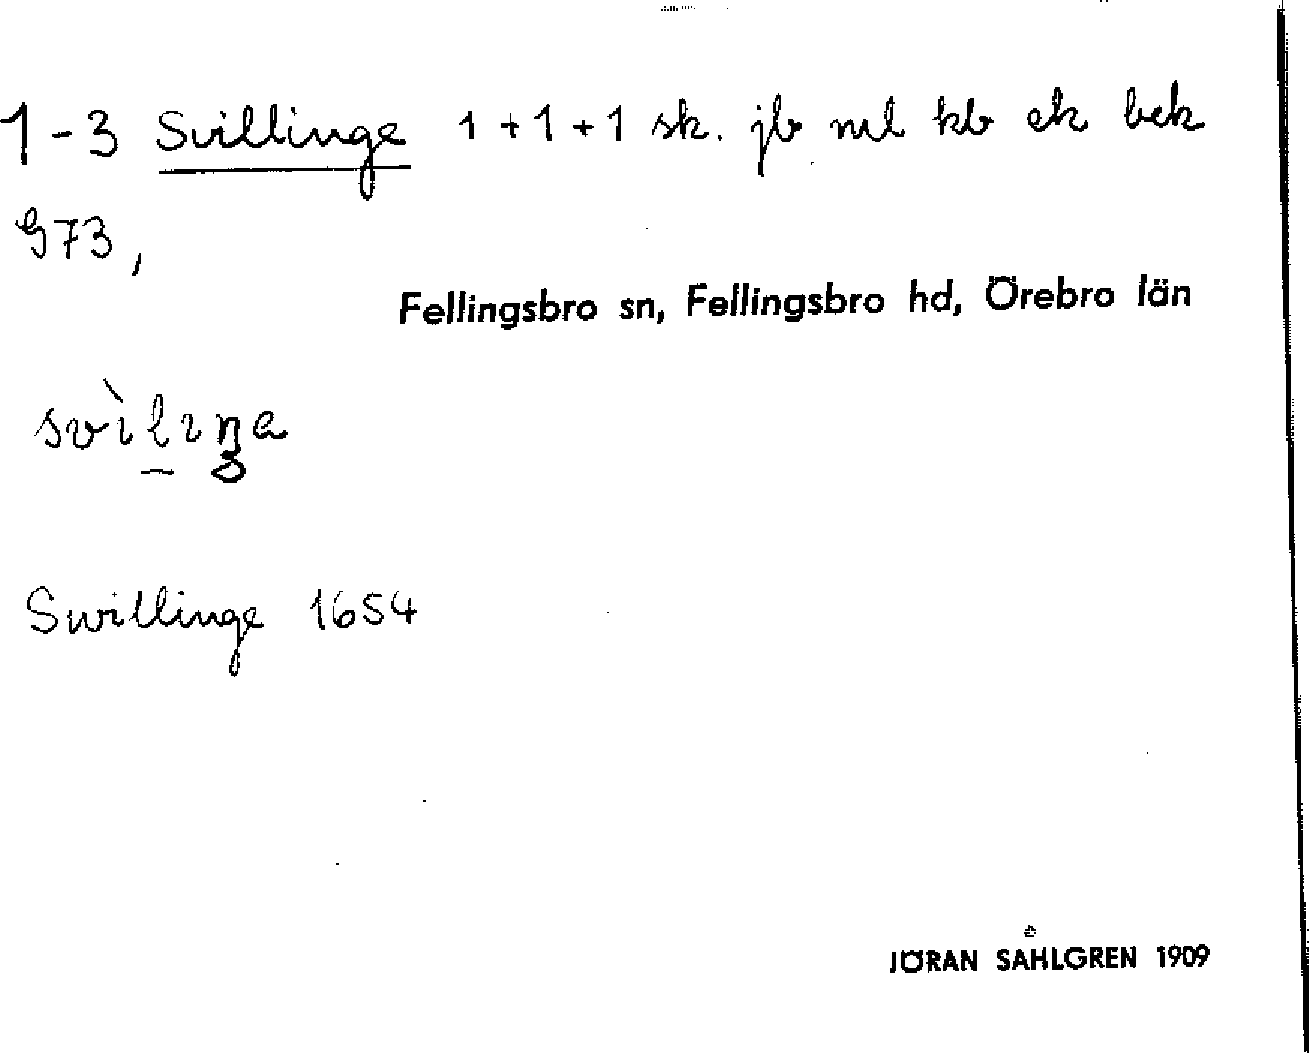 1-3 Svillinge 1+1+1 sk. jb ml kb ek bek
G73,
Fellingsbro sn, Fellingsbro hd, Örebro län
Swillinge 1654
JÖRAN SAHLGREN 1909